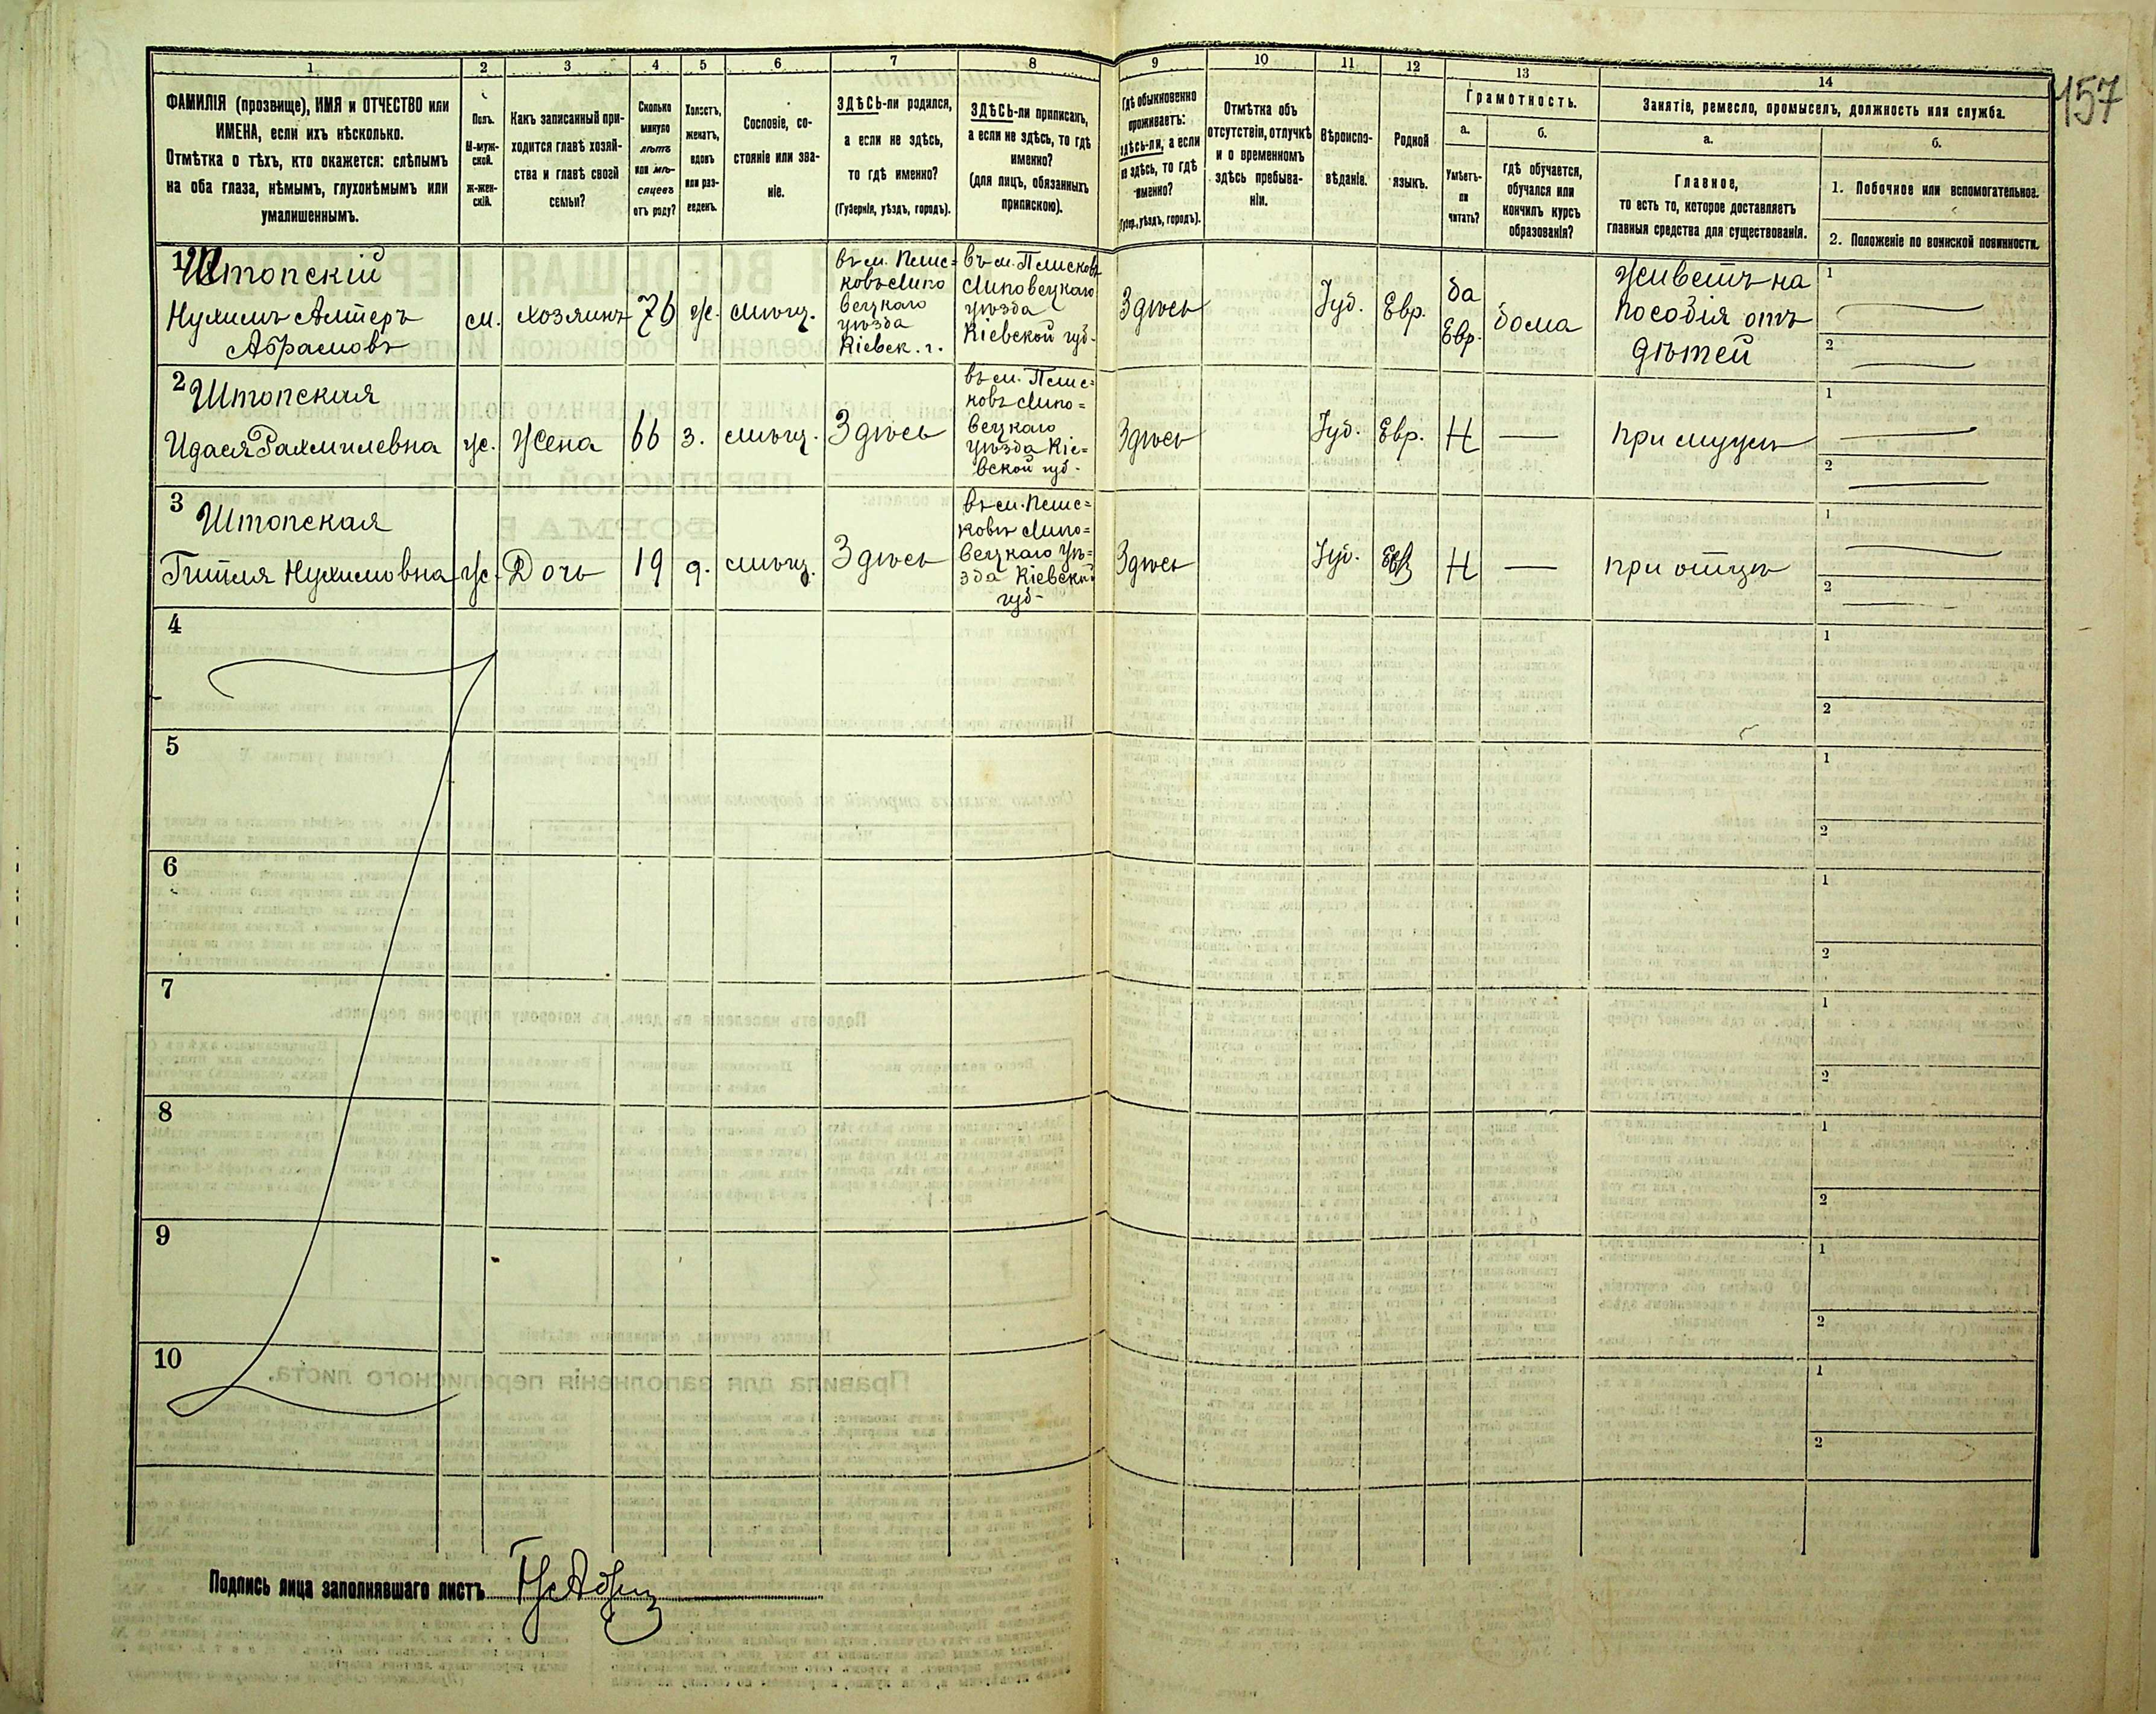 157
1 2 3 4 5 6 7 8 9 10 11 12 13 14
ФАМИЛІЯ (прозвище), ИМЯ и ОТЧЕСТВО или
ИМЕНА, если ихъ нѣсколько.
Отмѣтка о тѣхъ, кто окажется: слѣпымъ
на оба глаза, нѣмымъ, глухонѣмымъ или
умалишеннымъ.
Полъ.
М-муж-
ской.
Ж-жен-
скій.
Какъ записанный при-
ходится главѣ хозяй-
ства и главѣ своей
семьи?
Сколько
минуло
лѣтъ
или мѣ-
сяцевъ
отъ роду?
Холостъ,
женатъ,
вдовъ
или раз-
веденъ.
Сословіе, со-
стояніе или зва-
ніе.
ЗДѢСЬ-ли родился,
а если не здѣсь,
то гдѣ именно?
(Губернія, уѣздъ, городъ).
ЗДѢСЬ-ли приписанъ,
а если не здѣсь, то гдѣ
именно?
(для лицъ, обязанныхъ
припискою).
Гдѣ обыкновенно
проживаетъ:
здѣсь-ли, а если
не здѣсь, то гдѣ
именно?
(Губер., уѣздъ, городъ).
Отмѣтка объ
отсутствіи, отлучкѣ
и о временномъ
здѣсь пребыва-
ніи.
Вѣроиспо-
вѣданіе.
Родной
языкъ.
Грамотность.
а.
Умѣетъ-
ли
читать?
б.
гдѣ обучается,
обучался или
кончилъ курсъ
образованія?
Занятіе, ремесло, промыселъ, должность или служба.
а.
Главное,
то есть то, которое доставляетъ
главныя средства для существованія.
б.
1. Побочное или вспомогательное.
2. Положеніе по воинской повинности.
1
Штопскій
Нухимъ Алтеръ
Абрамовъ
м.
хозяинъ
76
ж.
мѣщ.
въ м. Пеис-
ковъ Липо
вецкаго
уѣзда
Кіевск. г.
въ м. Песисковъ
Липовецкаго
уѣзда
Кіевской губ.
Здѣсь
Іуд.
Евр.
да
Евр.
дома
Живетъ на
пособія отъ
дѣтей
1
2
2
Штопская
Идася Рахмилевна
ж.
Жена
66
з.
мѣщ.
Здѣсь
въ м. Пеис-
ковъ Липо-
вецкаго
уѣзда Кіе-
вской губ.
Здѣсь
Іуд.
Евр.
Н
—
при мужѣ
1
2
3
Штопская
Гитля Нухимовна
ж.
Дочь
19
д.
мѣщ.
Здѣсь
въ м. Пеис-
ковъ Липо-
вецкаго уѣ-
зда Кіевской
губ.
Здѣсь
Іуд.
Евр
Н
—
при отцѣ
1
2
4
1
2
5
1
2
6
1
2
7
1
2
8
1
2
9
1
2
10
1
2
Подпись лица заполнявшаго листъ